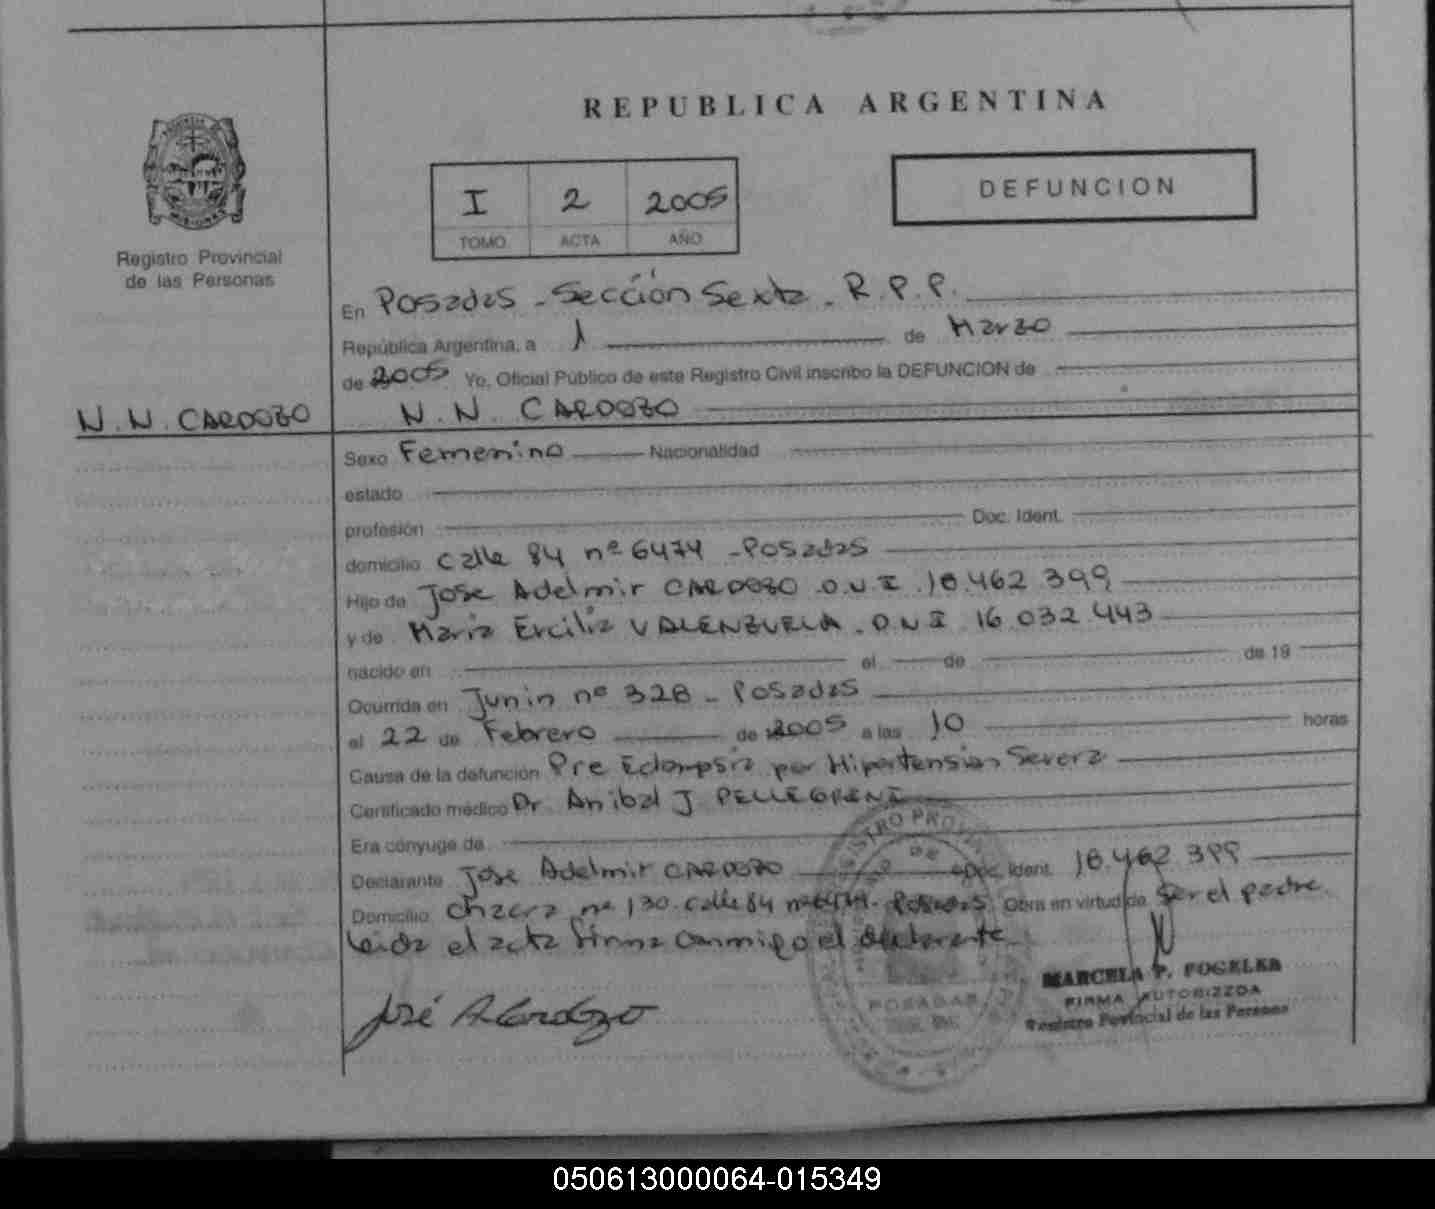 REPUBLICA ARGENTINA
MISIONES
Registro Provincial
de las Personas
I 2 2005
TOMO ACTA AÑO
DEFUNCION
En Posadas - Sección Sexta - R.P.P.
República Argentina, a 1 de Marzo
de 2005 Yo, Oficial Público de este Registro Civil inscribo la DEFUNCION de
N.N. CARDOZO
N. N. CARDOZO
Sexo Femenino Nacionalidad
estado
profesión Doc. Ident.
domicilio Calle 84 nº 6474 - Posadas
Hijo de Jose Adelmir CARDOZO D.N.I. 18.462.399
y de Maria Ercilia VALENZUELA. D.N.I. 16.032.443
nacido en el de de 19
Ocurrida en Junin nº 328 - Posadas
el 22 de Febrero de 2005 a las 10 horas
Causa de la defunción Pre Eclampsia por Hipertension Severa
Certificado médico Dr. Anibal J PELLEGRINI
Era cónyuge de
Declarante Jose Adelmir CARDOZO Doc. Ident. 18.462.399
Domicilio Chacra nº 130 calle 84 nº 6474 - Posadas Obra en virtud de Ser el padre.
Leida el acta firma conmigo el declarante
José A Cardozo
POSADAS
MARCELA P. FOGELER
FIRMA AUTORIZZDA
Registro Provincial de las Personas
050613000064-015349